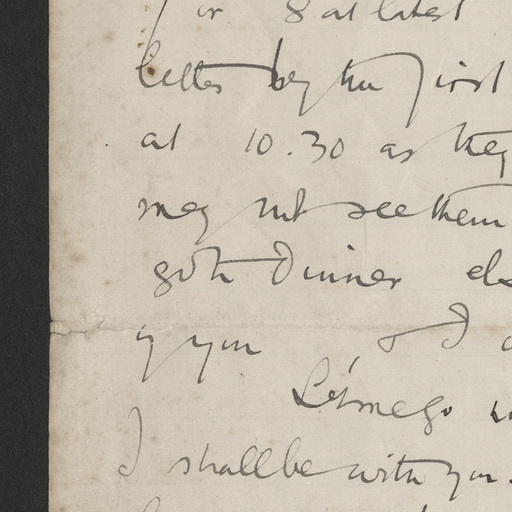 7 or 8 at latest
letter by the first
at 10.30 as they
may not see them
go to dinner els
if you & I
Let me go
I shall be with you.